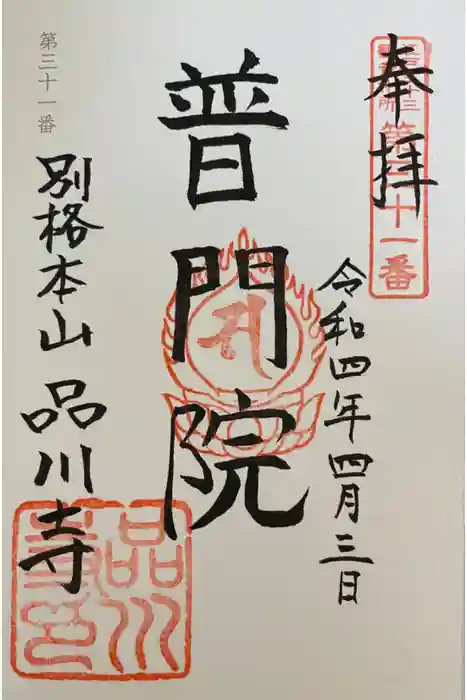 奉拝
第三十一番
令和四年四月三日
普門院
第三十一番
別格本山 品川寺
品川寺印